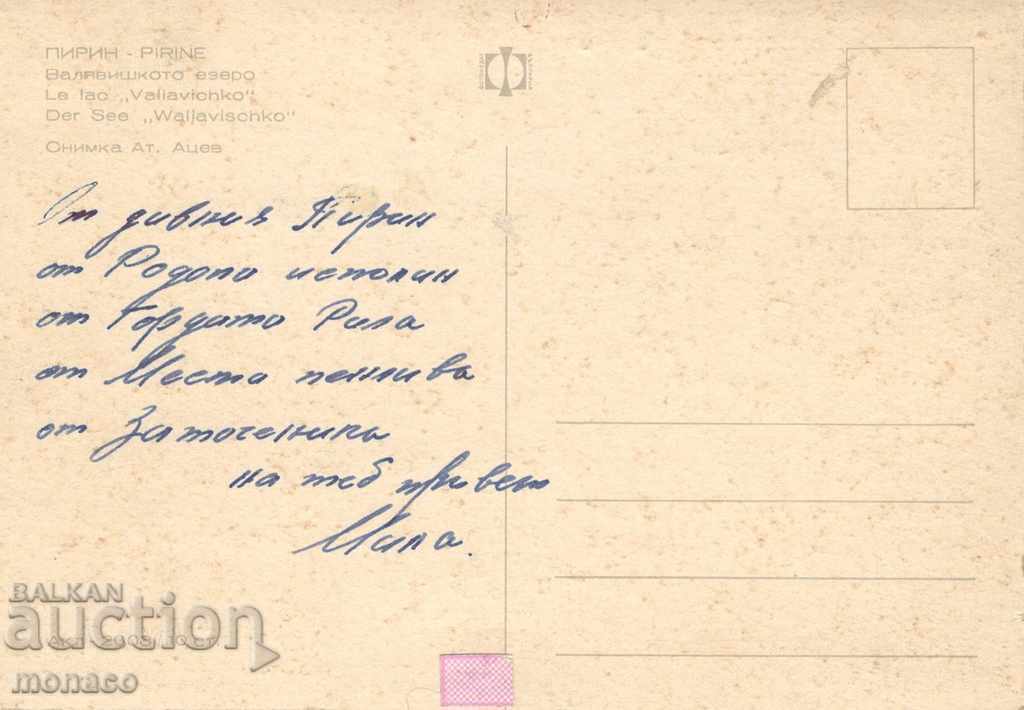 ПИРИН - PIRINE
Валявишкото езеро
Le lac „Valiavichko“
Der See „Waljavischko“
Снимка Ат. Ацев
От дивния Пирин
от Родопа исполин
от Гордата Рила
от Места пенлива
от Заточеника
на теб привет
Мила.
BALKAN
auction
monaco